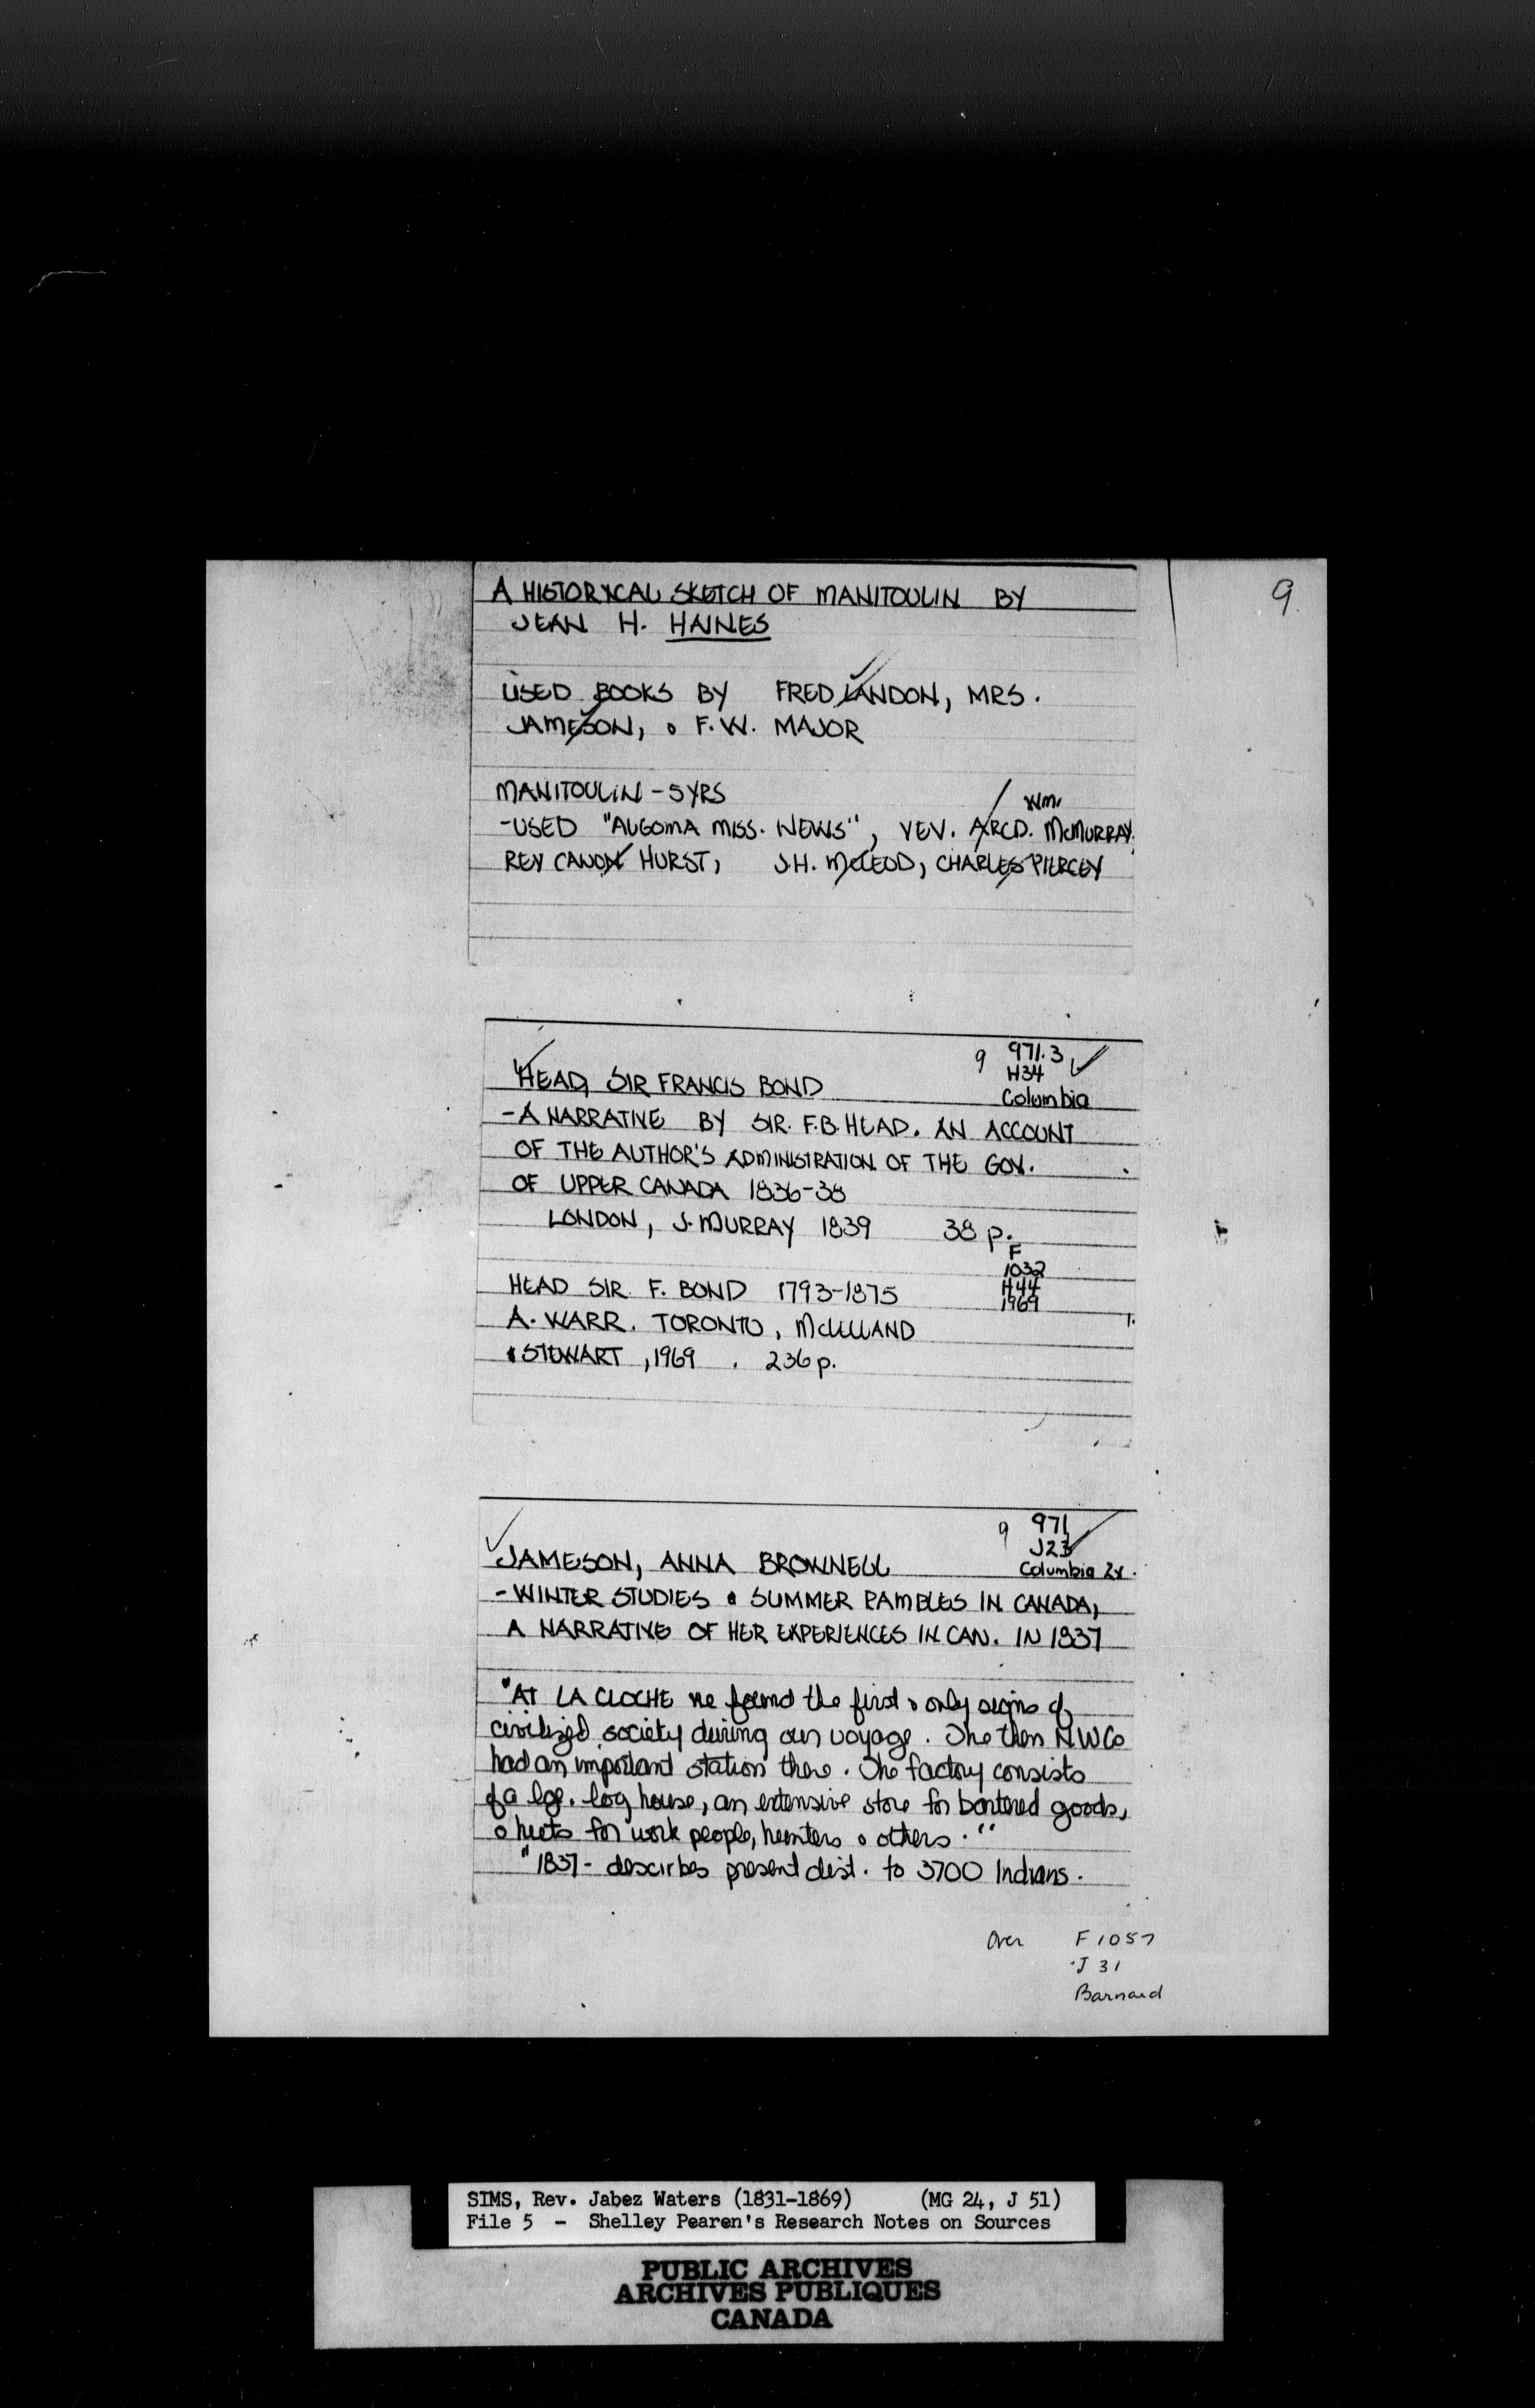 9.
A HISTORICAL SKETCH OF MANITOULIN BY
JEAN H. HAINES
USED BOOKS BY FRED LANDON, MRS.
JAMESON, & F.W. MAJOR
MANITOULIN - 5 YRS
Wm.
- USED "ALGOMA MISS. NEWS", VEV. ARCD. McMURRAY.
REV CANON HURST, J.H. McLEOD, CHARLES PIERCEY
9 971.3
H34
HEAD, SIR FRANCIS BOND
Columbia
- A NARRATIVE BY SIR. F.B. HEAD. AN ACCOUNT
OF THE AUTHOR'S ADMINISTRATION OF THE GOV.
OF UPPER CANADA 1836-38
LONDON, J. MURRAY 1839 38 p.
F
1032
HEAD SIR F. BOND 1793-1875
H44
1969
A. WARR. TORONTO, McLELLAND
& STEWART, 1969. 236 p.
9 971
J23
JAMESON, ANNA BROWNELL
Columbia 2x.
- WINTER STUDIES & SUMMER RAMBLES IN CANADA,
A NARRATIVE OF HER EXPERIENCES IN CAN. IN 1837
"AT LA CLOCHE we found the first & only signs of
civilized society during our voyage. The then N.W.Co
had an important station there. The factory consists
of a lge. log house, an extensive store for bartered goods,
& huts for work people, hunters & others."
"1837 - descirbes present dist. to 3700 Indians.
Over F 1057
J 31
Barnard
SIMS, Rev. Jabez Waters (1831-1869) (MG 24, J 51)
File 5 - Shelley Pearen's Research Notes on Sources
PUBLIC ARCHIVES
ARCHIVES PUBLIQUES
CANADA